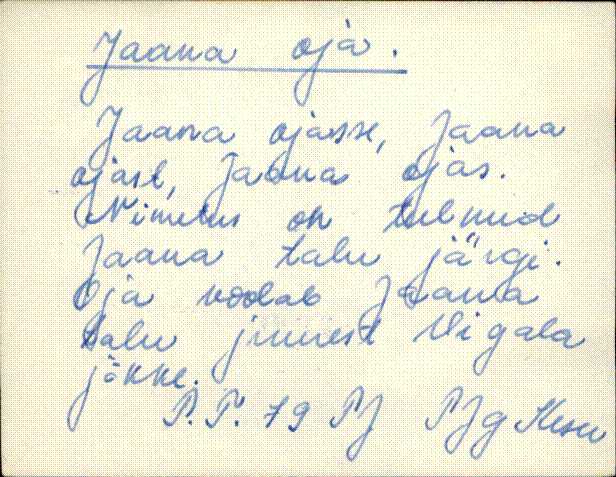 Jaana oja.
Jaana ojasse, Jaana
ojast, Jaana ojas.
Nimetus on tulnud
Jaana talu järgi.
Oja voolab Jaana
talu juurest Vigala
jõkke.
P.T. 79 PJ PJg Kesu